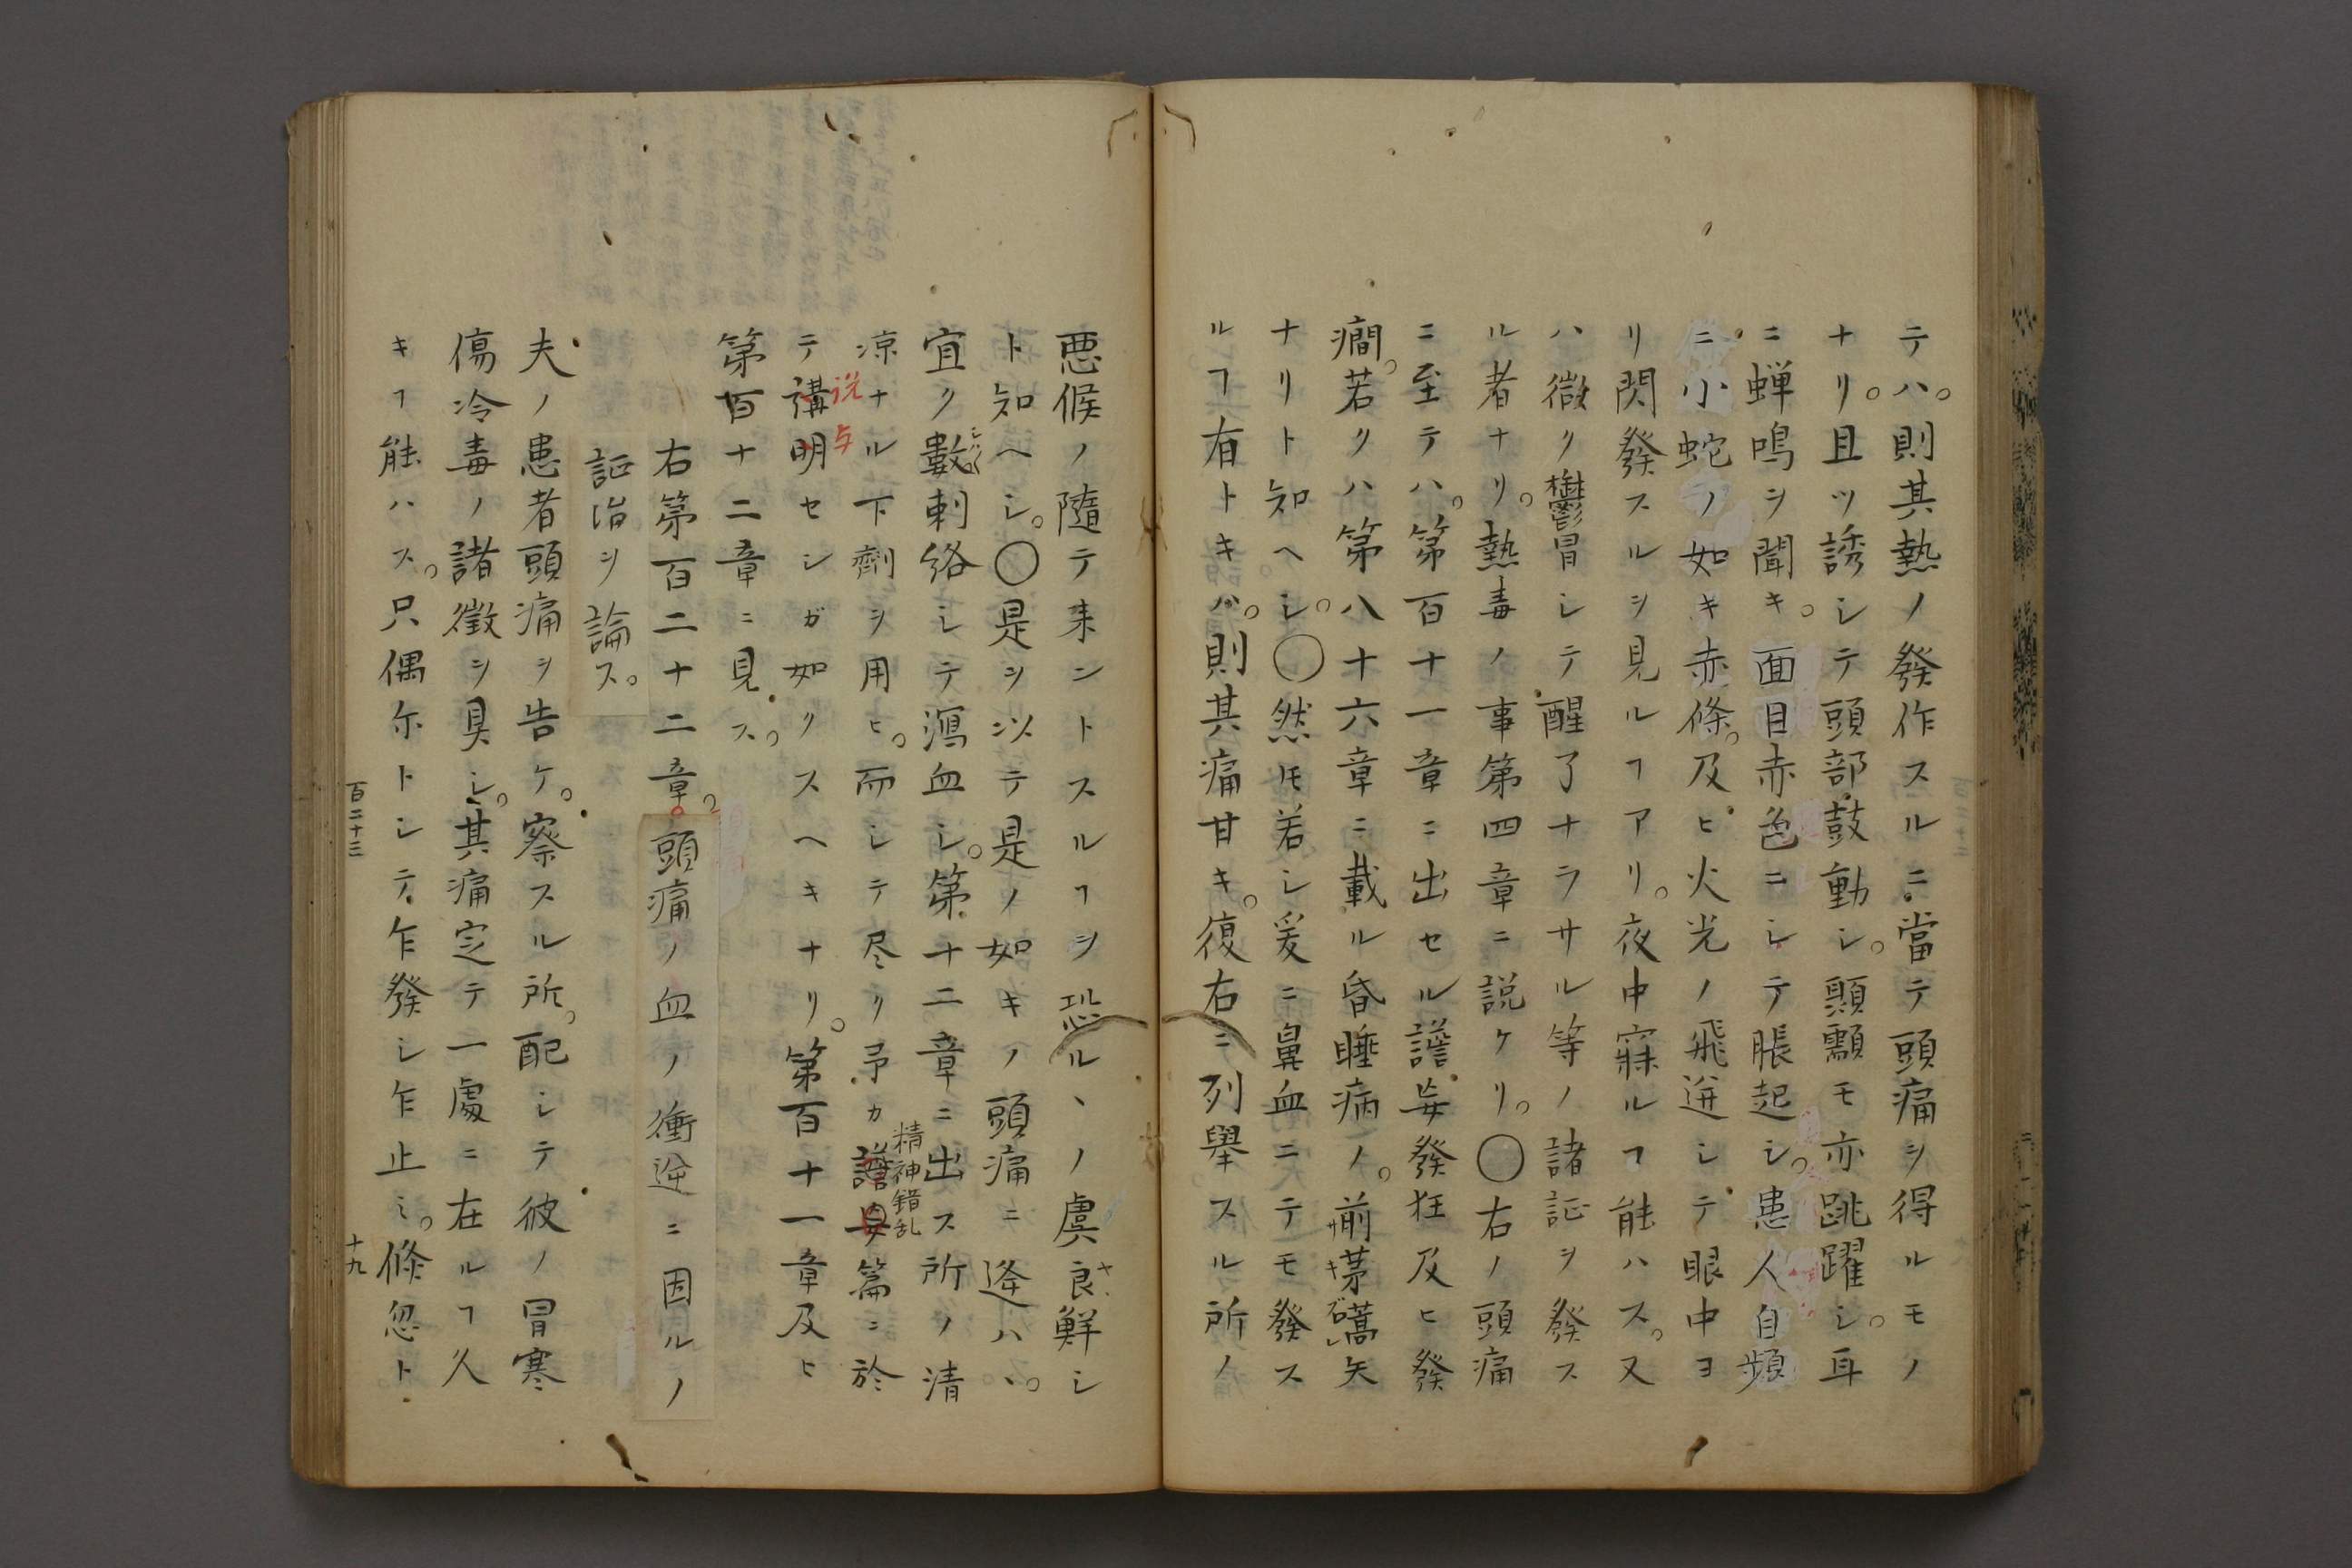 テハ。則其熱ノ發作スルニ。當テ頭痛ヲ得ルモノ
ナリ。且ツ誘シテ頭部鼓動シ。顳顬モ亦跳躍シ。耳
ニ蝉鳴ヲ聞キ。面目赤色ニシテ脹起シ。患人自頻
ニ小蛇ノ如キ赤條。及ヒ火光ノ飛迸シテ眼中ヨ
リ閃發スルヲ見ルヿアリ。夜中寐ルヿ能ハス。又
ハ微ク鬱冒シテ醒了ナラサル等ノ諸証ヲ發ス
ル者ナリ。熱毒ノ事第四章ニ説ケリ。〇右ノ頭痛
ニ至テハ。第百十一章ニ出セル譫妄發狂及ヒ發
癎。若クハ第八十六章ニ載ル昏睡病ノ。前茅嚆矢
サキ
ナリト知ヘシ。〇然ㇺ若シ爰ニ鼻血ニテモ發ス
ルヿ有トキハ。則其痛甘キ。復右ニ列擧スル所ノ
悪候ノ隨テ来ントスルヿヲ恐ルヽノ虞良鮮シ
ト知ヘシ。〇是ヲ以テ是ノ如キノ頭痛ニ逢ハヽ。
宜ク數刺絡シテ瀉血シ。第十二章ニ出ス所ノ清
凉ナル下劑ヲ用ヒ。而シテ尽リ予カ譫妄篇ニ於
精神錯乱
テ講明セシガ如クスヘキナリ。第百十一章及ヒ
説与
第百十二章ニ見ス。
右第百二十二章。頭痛ノ血ノ衝逆ニ因ルノ
証治ヲ論ス。
夫ノ患者頭痛ヲ告ケ。察スル所。配シテ彼ノ冒寒
傷冷毒ノ諸徴ヲ具シ。其痛定テ一處ニ在ルヿ久
キヿ能ハス。只偶尓トシテ乍發シ乍止ミ。倏忽ト
百二十三
十九